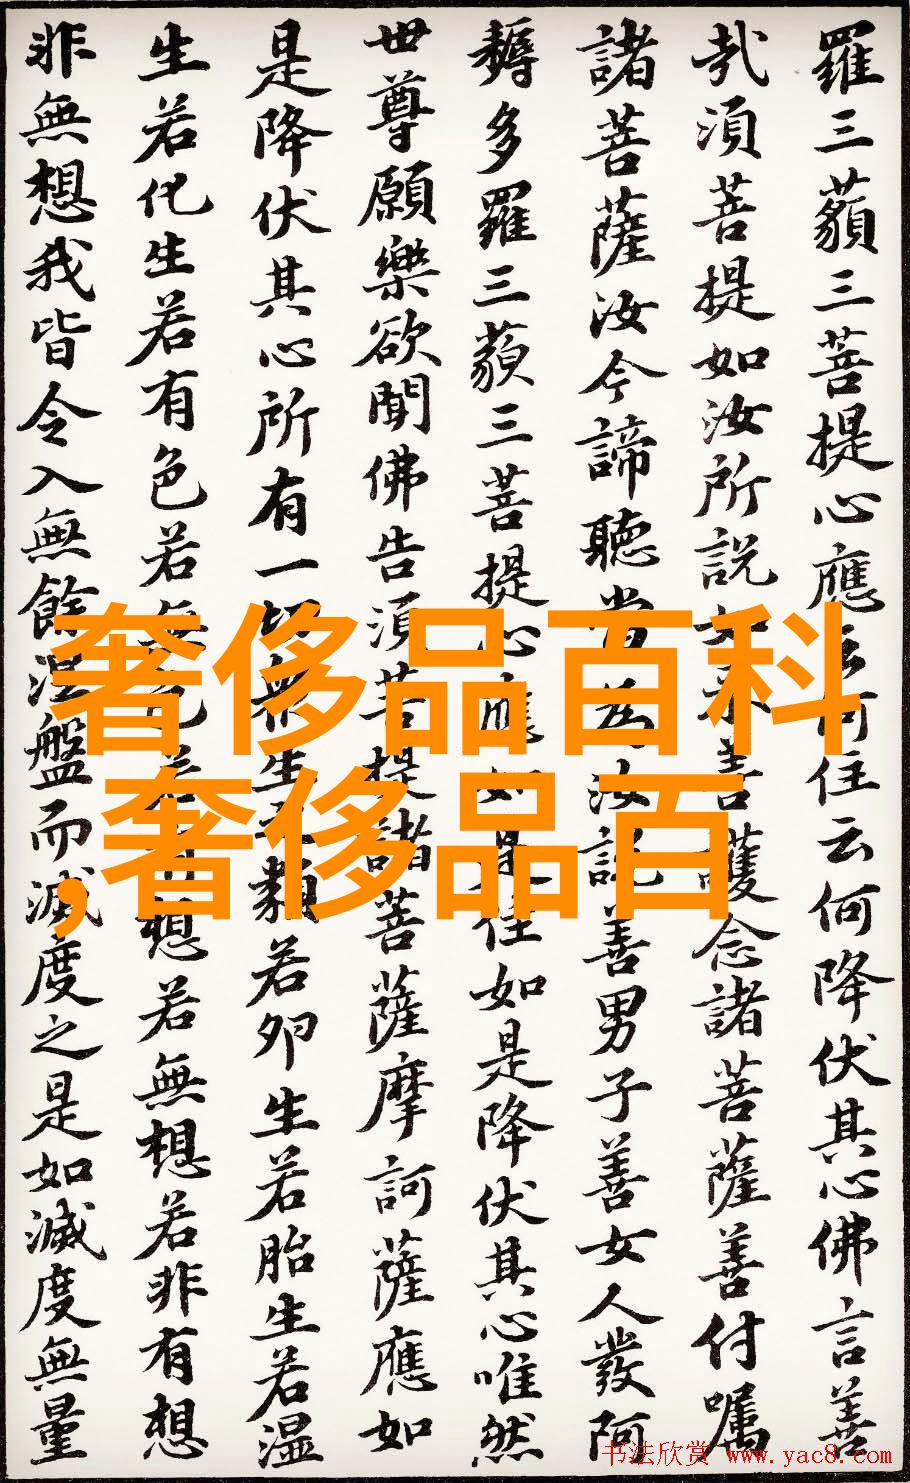 羅三藐三菩提心應云何住云何降伏其心佛言善
哉須菩提如汝所說如來善護念諸菩薩善付囑
諸菩薩汝今諦聽當為汝說善男子善女人發阿
耨多羅三藐三菩提心應如是住如是降伏其心唯然
世尊願樂欲聞佛告須菩提諸菩薩摩訶薩應如
是降伏其心所有一切眾生之類若卵生若胎生若濕
生若化生若有色若無色若有想若無想若非有想
非無想我皆令入無餘涅盤而滅度之是如滅度無量
奢侈品百科
,奢侈品百
书法欣赏 www.yac8.com